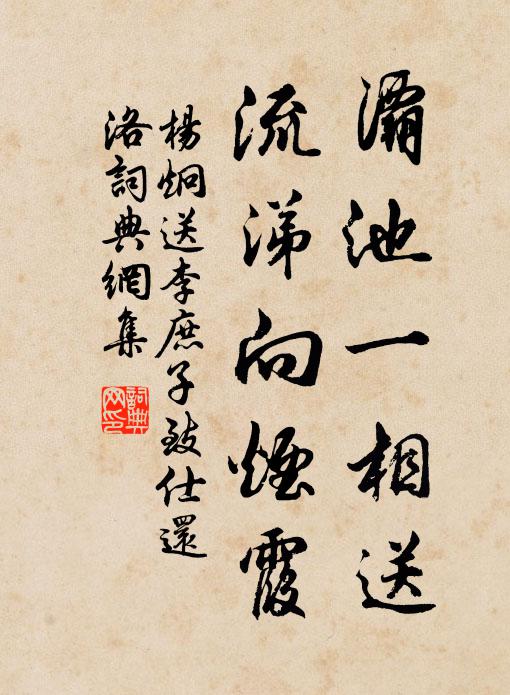 灞池一相送
流涕向煙霞
楊炯送李庶子致仕還
洛詞典網集
詞典
网印